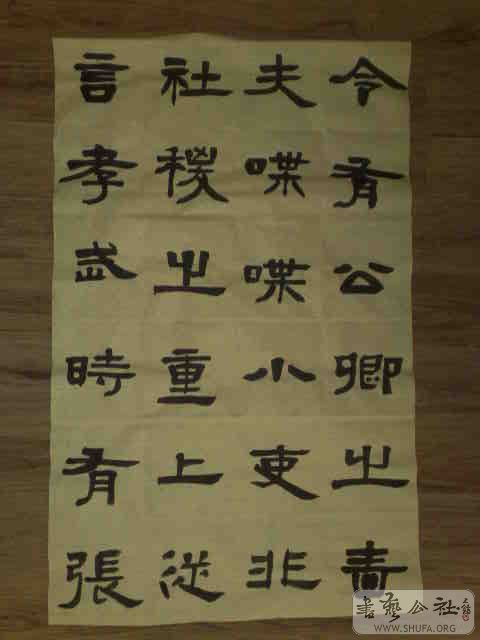 令有公卿之嗇
夫喋喋小吏非
社稷之重上從
言孝武時有張
書藝公社
WWW.SHUFA.ORG